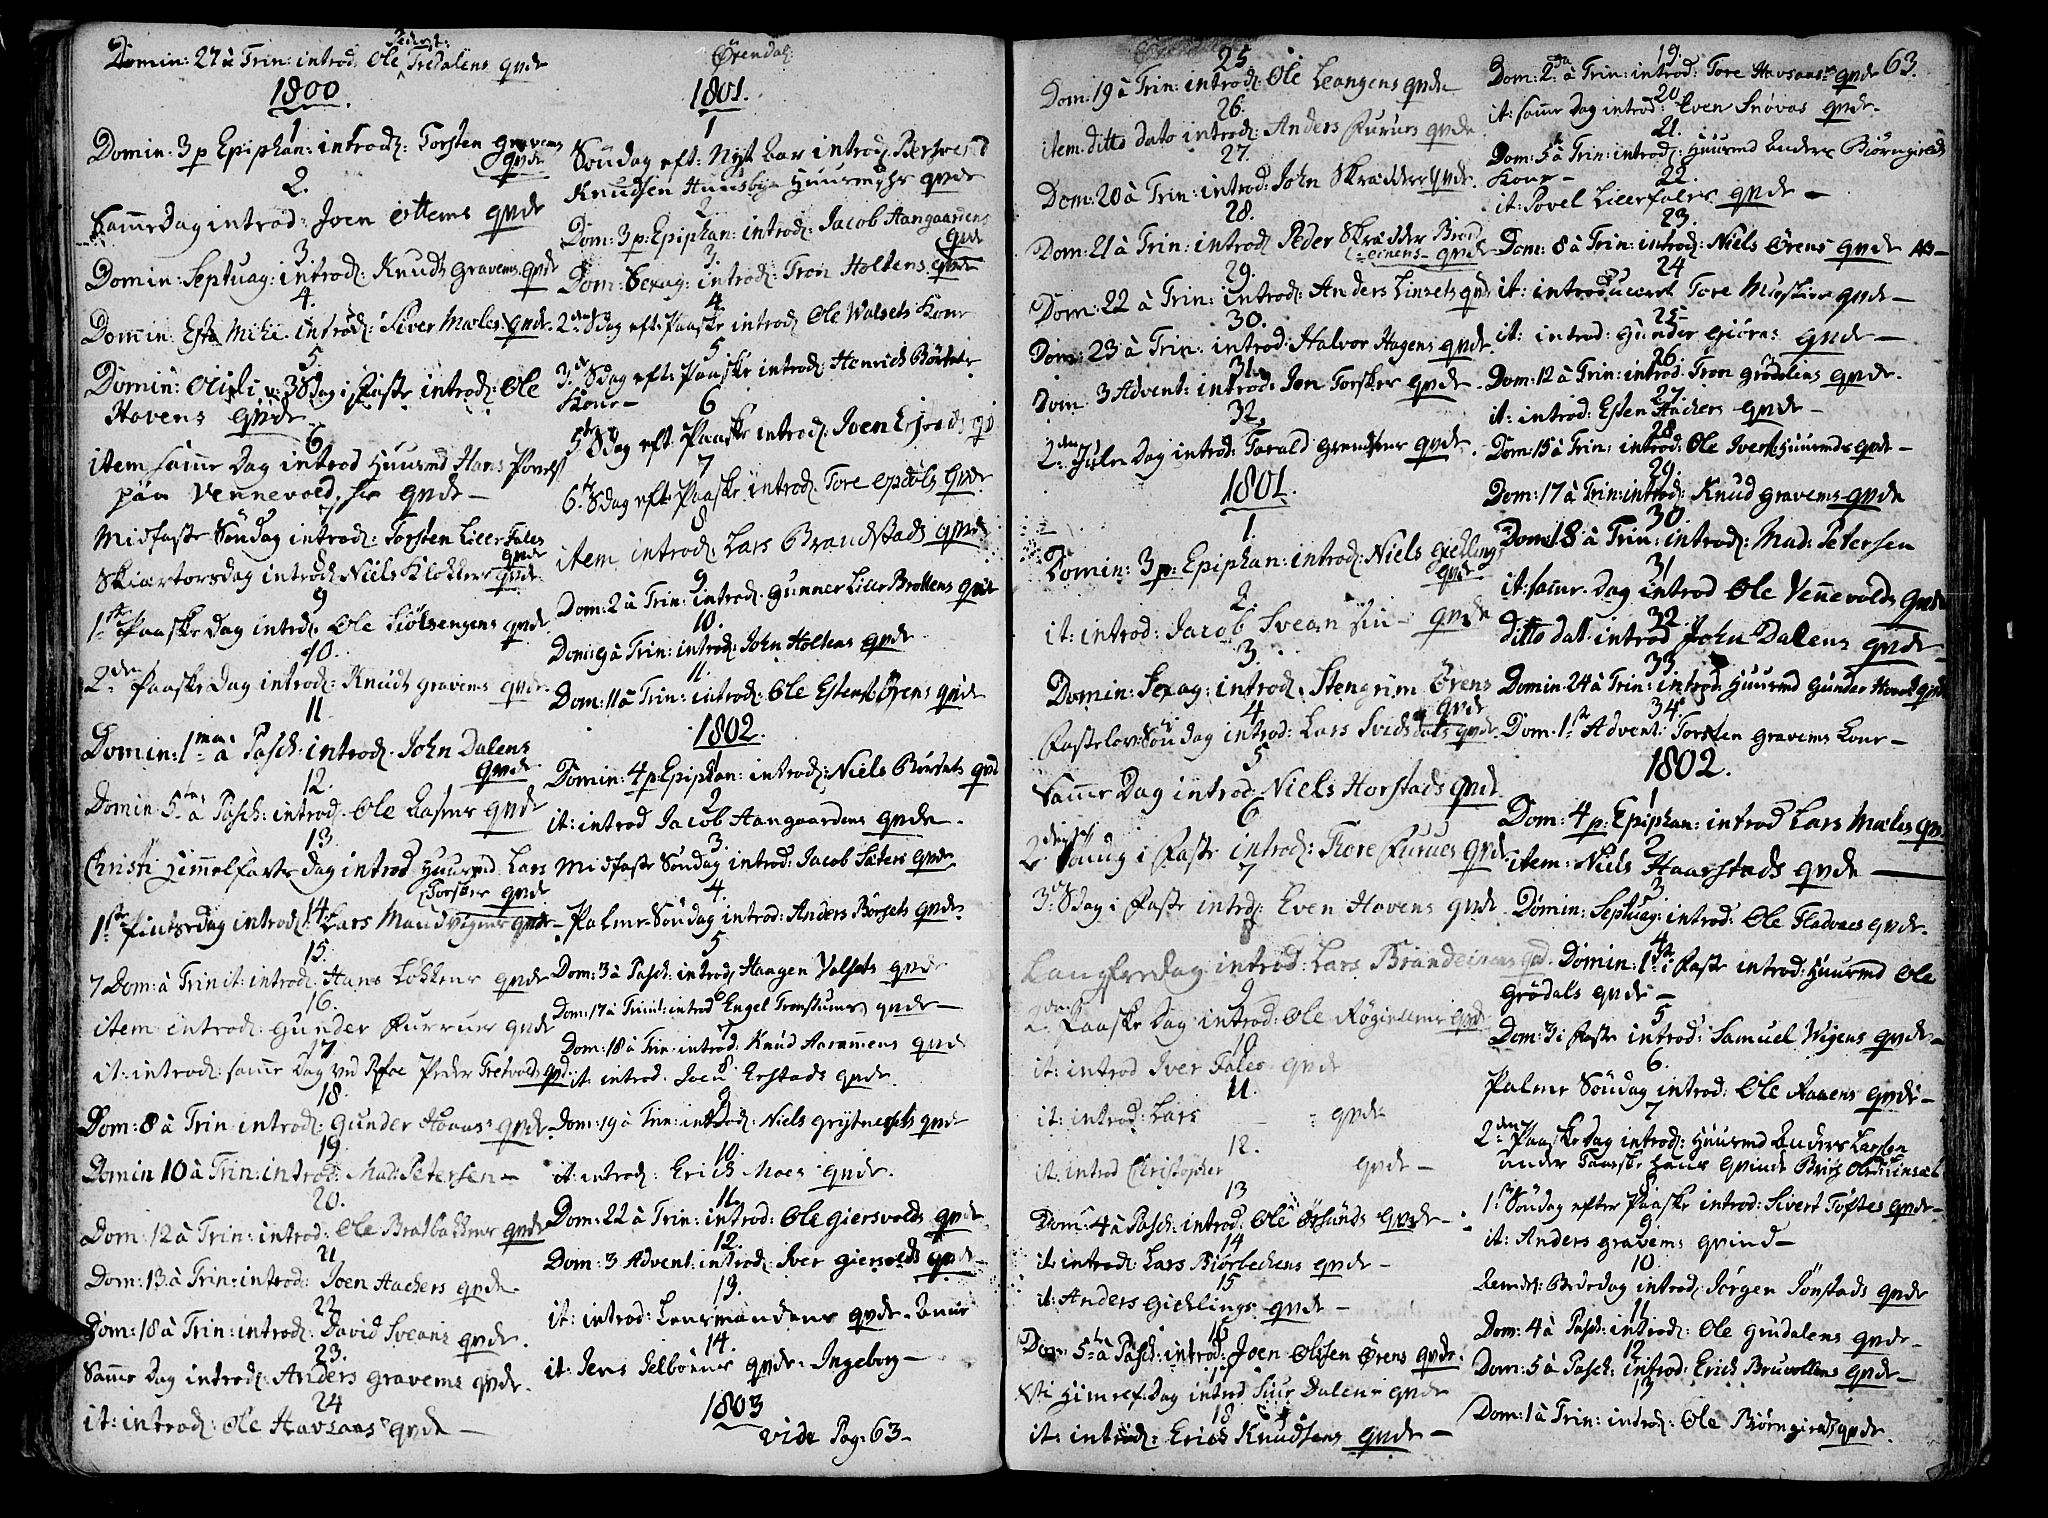 Pederst:
Domin: 27 à Trin: introd. Ole Tredalens qvde
1800.
1
Domin: 3 p Epiphan: introd: Torsten Gravems
qvde
2.
Samme Dag introd: Joen Ottems qvde
3.
Domin: Septuag: introd: Knudt Gravems qvde
4.
Domin: Esto Mihi introd: Siver Mæles qvde.
5.
Domin: Oculi 3 Sdag i Faste introd: Ole
Hovens qvde
6
item samme Dag introd Huusmd Hans Povels
paa Vennevold, hs qvde
7
Midfaste Søndag introd: Torsten Liller Fales
qvde
8
Skiærtorsdag introd Niels Klokkers qvde.
9
1ste Paaske Dag introd: Ole Siølsengens qvde
10.
2den Paaske Dag introd: Knudt Gravems qvde.
11
Domin: 1ma à Pasch: introd: John Dalens
qvde
12.
Domin: 5ta à Pasch: introd: Ole Aasens qvde
13.
Christi Himmelfarts dag introd Huusmd. Lars
Torsker qvde
14.
1ste Pintsedag introd: Lars Maudvigens qvde
15.
7 Dom: à Trinit: introd: Hans Løkkens qvde
16.
item introd: Gunder Furruer qvde
17
it: introd: samme Dag Peder Tretvolds qvd.
18.
Dom: 8 à Trin introd: Gunder Hoaas qvde.
19
Domin 10 à Trin: introd: Mad: Petersen
20.
Dom: 12 à Trin: introd: Ole Bratbakkens qvde
21
Dom: 13 à Trin: introd: Joen Hachers qvde
22
Dom: 18 à Trin: introd: David Sveans qvde.
23.
Samme Dag introd: Anders Gravems qvde.
24
it: introd: Ole Havsaas qvde
Örendal:
1801.
1
Søndag eft: Nyt Aar introd: Bersvend
Knudsen Huusbye Huusmyhr qvde
2
Dom: 3 p: Epiphan: introd: Jacob Aangaardens
qvde
3.
Dom: Sexag: introd: Tron Holtens qvde
4.
2den Sdag eft: Paaske introd Ole Walsets Kone
5
3die Sdag eft: Paaske introd: Henrich Börsets
Kone
6
5te Sdag eft Paaske introd: Joen Erstads qv
7
6te Sdag eft Paaske introd: Tore Opdöls qvde
8
item introd: Lars Brandstads qvde
9
Dom: 2 à Trin: introd: Gunner Lille Brottens qvde
10.
Dom: 9 à Trin: introd: John Holtens qvde
11.
Dom: 11 à Trin: introd: Ole Estenst Örens qvde
1802.
1
Domin: 4 p: Epiphan: introd: Niels Börsets qvd
2
it: introd Jacob Aangaardens qvde.
3.
Midfaste Søndag introd: Jacob Sæters qvde
4.
Palme Søndag introd: Anders Börsets qvde.
5
Dom: 3 à Pasch: introd: Haagen Valsets qvde
6
Dom: 17 à Trinit: introd Engel Tronstuens qvde
7
Dom: 18 à Trin: introd: Knud Aarammens qvde
8
it: introd: Joen Erstads qvde.
9
Dom: 19 à Trin: introd: Niels Grytnesets qvde
10.
it: introd: Erich Moes qvde.
11
Dom: 22 à Trin: introd: Ole Giersvolds qvde.
12.
Dom: 3 Advent: introd: Iver Giersvolds qvde
13.
it: introd: Lensmandens qvde. Anne
14.
it: Jens Jelbönes qvde. Ingeborg
1803
vide Pag: 63.
25
Dom: 19 à Trin: introd: Ole Leangens qvde
26.
item: ditto dato introd: Anders Furues qvde
27.
Dom: 20 à Trin: introd: John Skrædders qvde.
28.
Dom: 21 à Trin: introd Peder Skrædder Brad
einens qvde
29.
Dom: 22 à Trin: introd: Anders Linsets qvde
30.
Dom: 23 à Trin: introd: Halvor Hagens qvde.
31.
Dom 3 Advent: introd: Jon Torsker qvde
32.
2den Jule Dag introd: Tarald Grendsens qvde
1801.
1.
Domin: 3 p: Epiphan: introd: Niels Giellings
qvde
2
it: introd: Jacob Svean sin qvde
3.
Domin: Sexag: introd. Stengrim Örens
qvde
4
Fastelovs Søndag introd: Lars Svisdals qvde
5
Samme Dag introd: Niels Horstads qvde.
6
2den Søndag i Faste introd: Tore Furues qvde
7
3die Sdag i Faste introd: Even Hovens qvde.
8
Langfredag introd: Lars Brandeinens qvd.
9
2den Paaske Dag introd: Ole Røgiellens qvde
10
it: introd Iver Fales qvde
11.
it: introd: Lars qvde
12.
it: introd Christopher qvde
13
Dom: 4 à Pasch: introd: Ole Orsunds qvde
14
it: introd: Lars Biörbechens qvde
15
it: Anders Giellings qvde
16
Dom: 5ta à Pasch: introd: Joen Olssen Örens qvde.
17
Xsti Himmelf. Dag introd Siur Dalens qvde
18
it: introd: Erich Knudsens qvde
63.
19.
Dom: 2da à Trin: introd: Tore Havsaas qvde
20
it: samme Dag introd: Even Snøvas qvde
21.
Dom: 5te à Trin: introd: Huusmd Anders Biörngiolds
Kone
22.
it: Povel Lillefales qvde
23.
Dom: 8 à Trin: introd: Niels Örens qvde
24
it: introduceret Tore Moskiers qvde
25
it: introd: Gunder Giöras qvde
26.
Dom: 12 à Trin: introd: Tron Grødalens qvde.
27
it: introd: Esten Hachers qvde
28
Dom: 15 à Trin: introd: Ole Ivers: Huusmds qvde
29.
Dom: 17 à Trin: introd: Knud Gravems qvde
30.
Dom: 18 à Trin: introd: Mad: Petersen
31
it: samme Dag introd Ole Vennevolds qvde
32.
ditto dat: introd John Dalens qvde
33
Domin 24 à Trin: introd: Huusmd Gunder Hoaas qvde
34.
Dom: 1ste Advent: Torsten Gravems Kone
1802.
1
Dom: 4 p: Epiphan: introd Lars Mæles qv.
2
item: Niels Haarstads qvde
3
Domin: Septuag: introd: Ole Fladvaes qvde.
4
Domin: 1ste i Faste introd: Huusmd Ole
Grødals qvde
5
Dom: 3 i Faste introd: Samuel Wigens qvde
6.
Palme Søndag introd: Ole Aanens qvde
7
2den Paaske Dag introd: Huusmd Anders Larsen
under Torske hans qvinde Brit
8
1ste Søndag efter Paaske introd: Sivert Toftes qvde
9
it: Anders Gravems qvind
10
Almdel: Bededag introd: Jörgen Jonstads qvde
11
Dom: 4 à Pasch: introd: Ole Grudalens qvde
12
Dom: 5 à Pasch: introd: Erich Bruvollens qvde
13
Dom: 1 à Trin: introd: Ole Biörngiolds qvde.